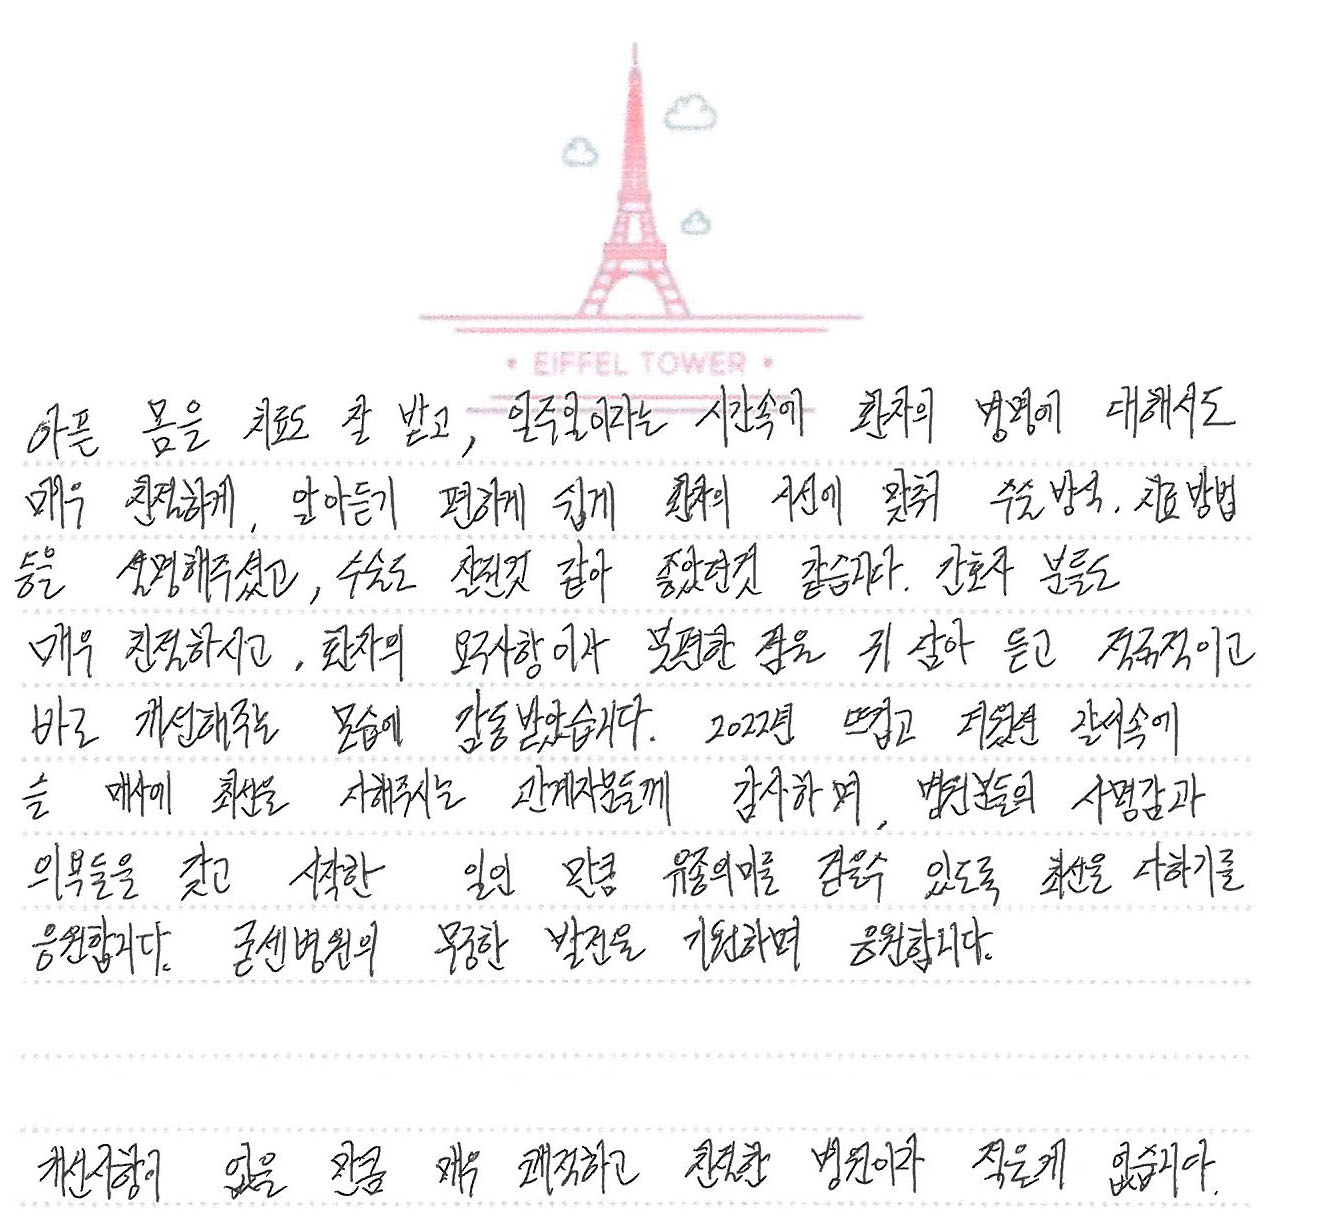 • EIFFEL TOWER •
아픈 몸을 치료도 잘 받고, 일주일이라는 시간속에 환자의 병명에 대해서도
매우 친절하게, 알아듣기 편하게 쉽게 환자의 시선에 맞춰 수술방식, 치료방법
등을 설명해주셨고, 수술도 잘된것 같아 좋았던것 같습니다. 간호사 분들도
매우 친절하시고, 환자의 요구사항이나 불편한 점을 귀 담아 듣고 적극적이고
바로 개선해주는 모습에 감동받았습니다. 2022년 뜨겁고 더웠던 날씨속에
늘 매사에 최선을 다해주시는 관계자분들께 감사하며, 병원분들의 사명감과
의복들을 갖고 시작한 일인 만큼 유종의미를 거둘수 있도록 최선을 다하기를
응원합니다. 굳센병원의 무궁한 발전을 기원하며 응원합니다.
개선사항이 없을 만큼 매우 쾌적하고 친절한 병원이라 적은게 없습니다.